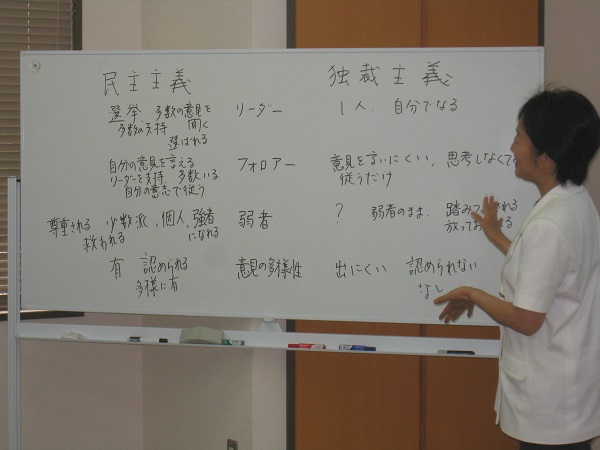 民主主義 独裁主義
選挙、多数の意見を聞く リーダー 1人、自分でなる
多数の支持 選ばれる
自分の意見を言える フォロアー 意見を言いにくい、思考しなくて
リーダーを支持 多数いる 従うだけ
自分の意志で従う
尊重される 少数派、個人、強者になれる 弱者 ? 弱者のまま、踏み
救われる 放って
有 認められる 意見の多様性 出にくい 認められない
多様に有 なし